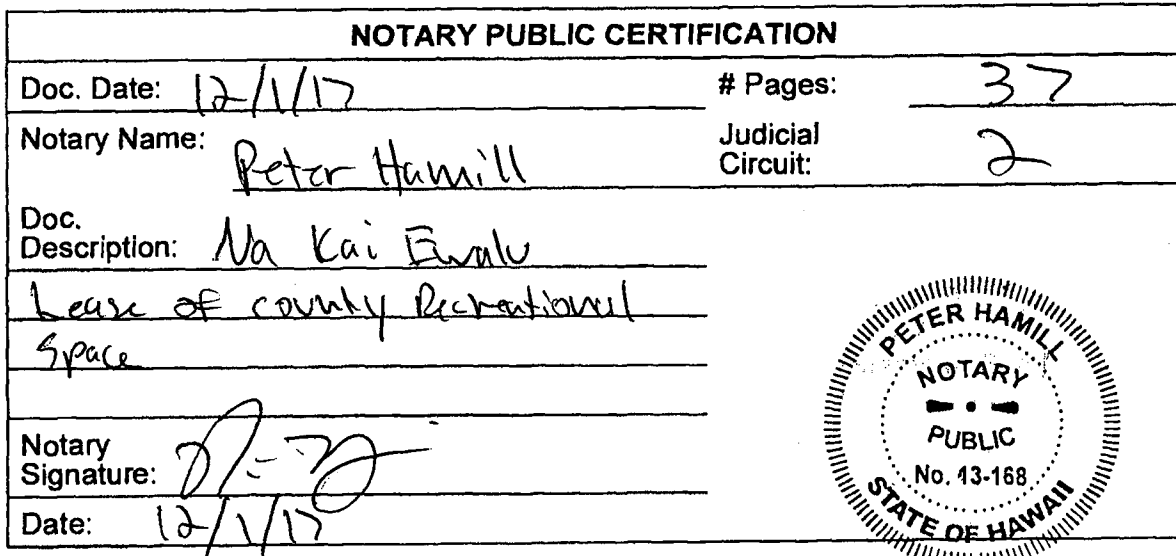 NOTARY PUBLIC CERTIFICATION
Doc. Date: 12/1/17 # Pages: 37
Notary Name: Peter Hamill Judicial Circuit: 2
Doc. Description: Na Kai Ewalu
Lease of county Recreational
Space
Notary Signature:
Date: 12/1/17
PETER HAMILL
NOTARY
PUBLIC
No. 13-168
STATE OF HAWAII